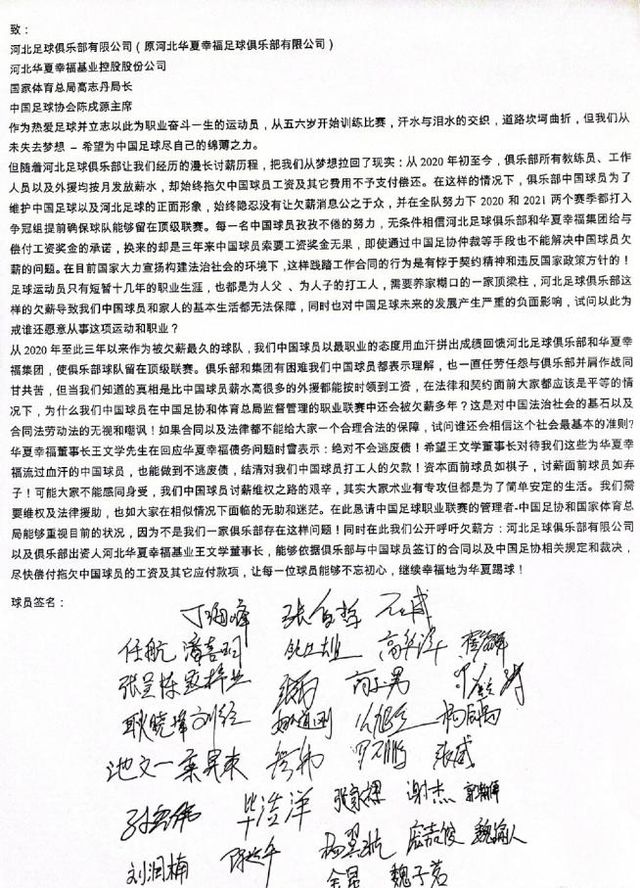 致：
河北足球俱乐部有限公司（原河北华夏幸福足球俱乐部有限公司）
河北华夏幸福基业控股股份公司
国家体育总局高志丹局长
中国足球协会陈戌源主席
作为热爱足球并立志以此为职业奋斗一生的运动员，从五六岁开始训练比赛，汗水与泪水的交织，道路坎坷曲折，但我们从
未失去梦想 – 希望为中国足球尽自己的绵薄之力。
但随着河北足球俱乐部让我们经历的漫长讨薪历程，把我们从梦想拉回了现实：从 2020 年初至今，俱乐部所有教练员、工作
人员以及外援均按月发放薪水，却始终拖欠中国球员工资及其它费用不予支付偿还。在这样的情况下，俱乐部中国球员为了
维护中国足球以及河北足球的正面形象，始终隐忍没有让欠薪消息公之于众，并在全队努力下 2020 和 2021 两个赛季都打入
争冠组提前确保球队能够留在顶级联赛。每一名中国球员孜孜不倦的努力，无条件相信河北足球俱乐部和华夏幸福集团给与
偿付工资奖金的承诺，换来的却是三年来中国球员索要工资奖金无果，即使通过中国足协仲裁等手段也不能解决中国球员欠
薪的问题。在目前国家大力宣扬构建法治社会的环境下，这样践踏工作合同的行为是有悖于契约精神和违反国家政策方针的！
足球运动员只有短暂十几年的职业生涯，也都是为人父 、为人子的打工人，需要养家糊口的一家顶梁柱，河北足球俱乐部这
样的欠薪导致我们中国球员和家人的基本生活都无法保障，同时也对中国足球未来的发展产生严重的负面影响，试问以此为
戒谁还愿意从事这项运动和职业？
从 2020 年至此三年以来作为被欠薪最久的球队，我们中国球员以最职业的态度用血汗拼出成绩回馈河北足球俱乐部和华夏幸
福集团，使俱乐部球队留在顶级联赛。俱乐部和集团有困难我们中国球员都表示理解，也一直任劳任怨与俱乐部并肩作战同
甘共苦，但当我们知道的真相是比中国球员薪水高很多的外援都能按时领到工资，在法律和契约面前大家都应该是平等的情
况下，为什么我们中国球员在中国足协和体育总局监督管理的职业联赛中还会被欠薪多年？这是对中国法治社会的基石以及
合同法劳动法的无视和嘲讽！如果合同以及法律都不能给大家一个合理合法的保障，试问谁还会相信这个社会最基本的准则?
华夏幸福董事长王文学先生在回应华夏幸福债务问题时曾表示：绝对不会逃废债！希望王文学董事长对待我们这些为华夏幸
福流过血汗的中国球员，也能做到不逃废债，结清对我们中国球员打工人的欠款！资本面前球员如棋子，讨薪面前球员如弃
子！可能大家不能感同身受，我们中国球员讨薪维权之路的艰辛，其实大家术业有专攻但都是为了简单安定的生活。我们需
要维权及法律援助，也如大家在相似情况下面临的无助和迷茫。在此恳请中国足球职业联赛的管理者-中国足协和国家体育总
局能够重视目前的状况，因为不是我们一家俱乐部存在这样问题！同时在此我们公开呼吁欠薪方：河北足球俱乐部有限公司
以及俱乐部出资人河北华夏幸福基业王文学董事长，能够依据俱乐部与中国球员签订的合同以及中国足协相关规定和裁决，
尽快偿付拖欠中国球员的工资及其它应付款项，让每一位球员能够不忘初心，继续幸福地为华夏踢球！
球员签名：
丁海峰
任航 潘喜明 高华泽
张呈栋
耿晓峰 刘经
池文一 张威
毕浩洋 张家祺 谢杰
刘润楠 魏子茗